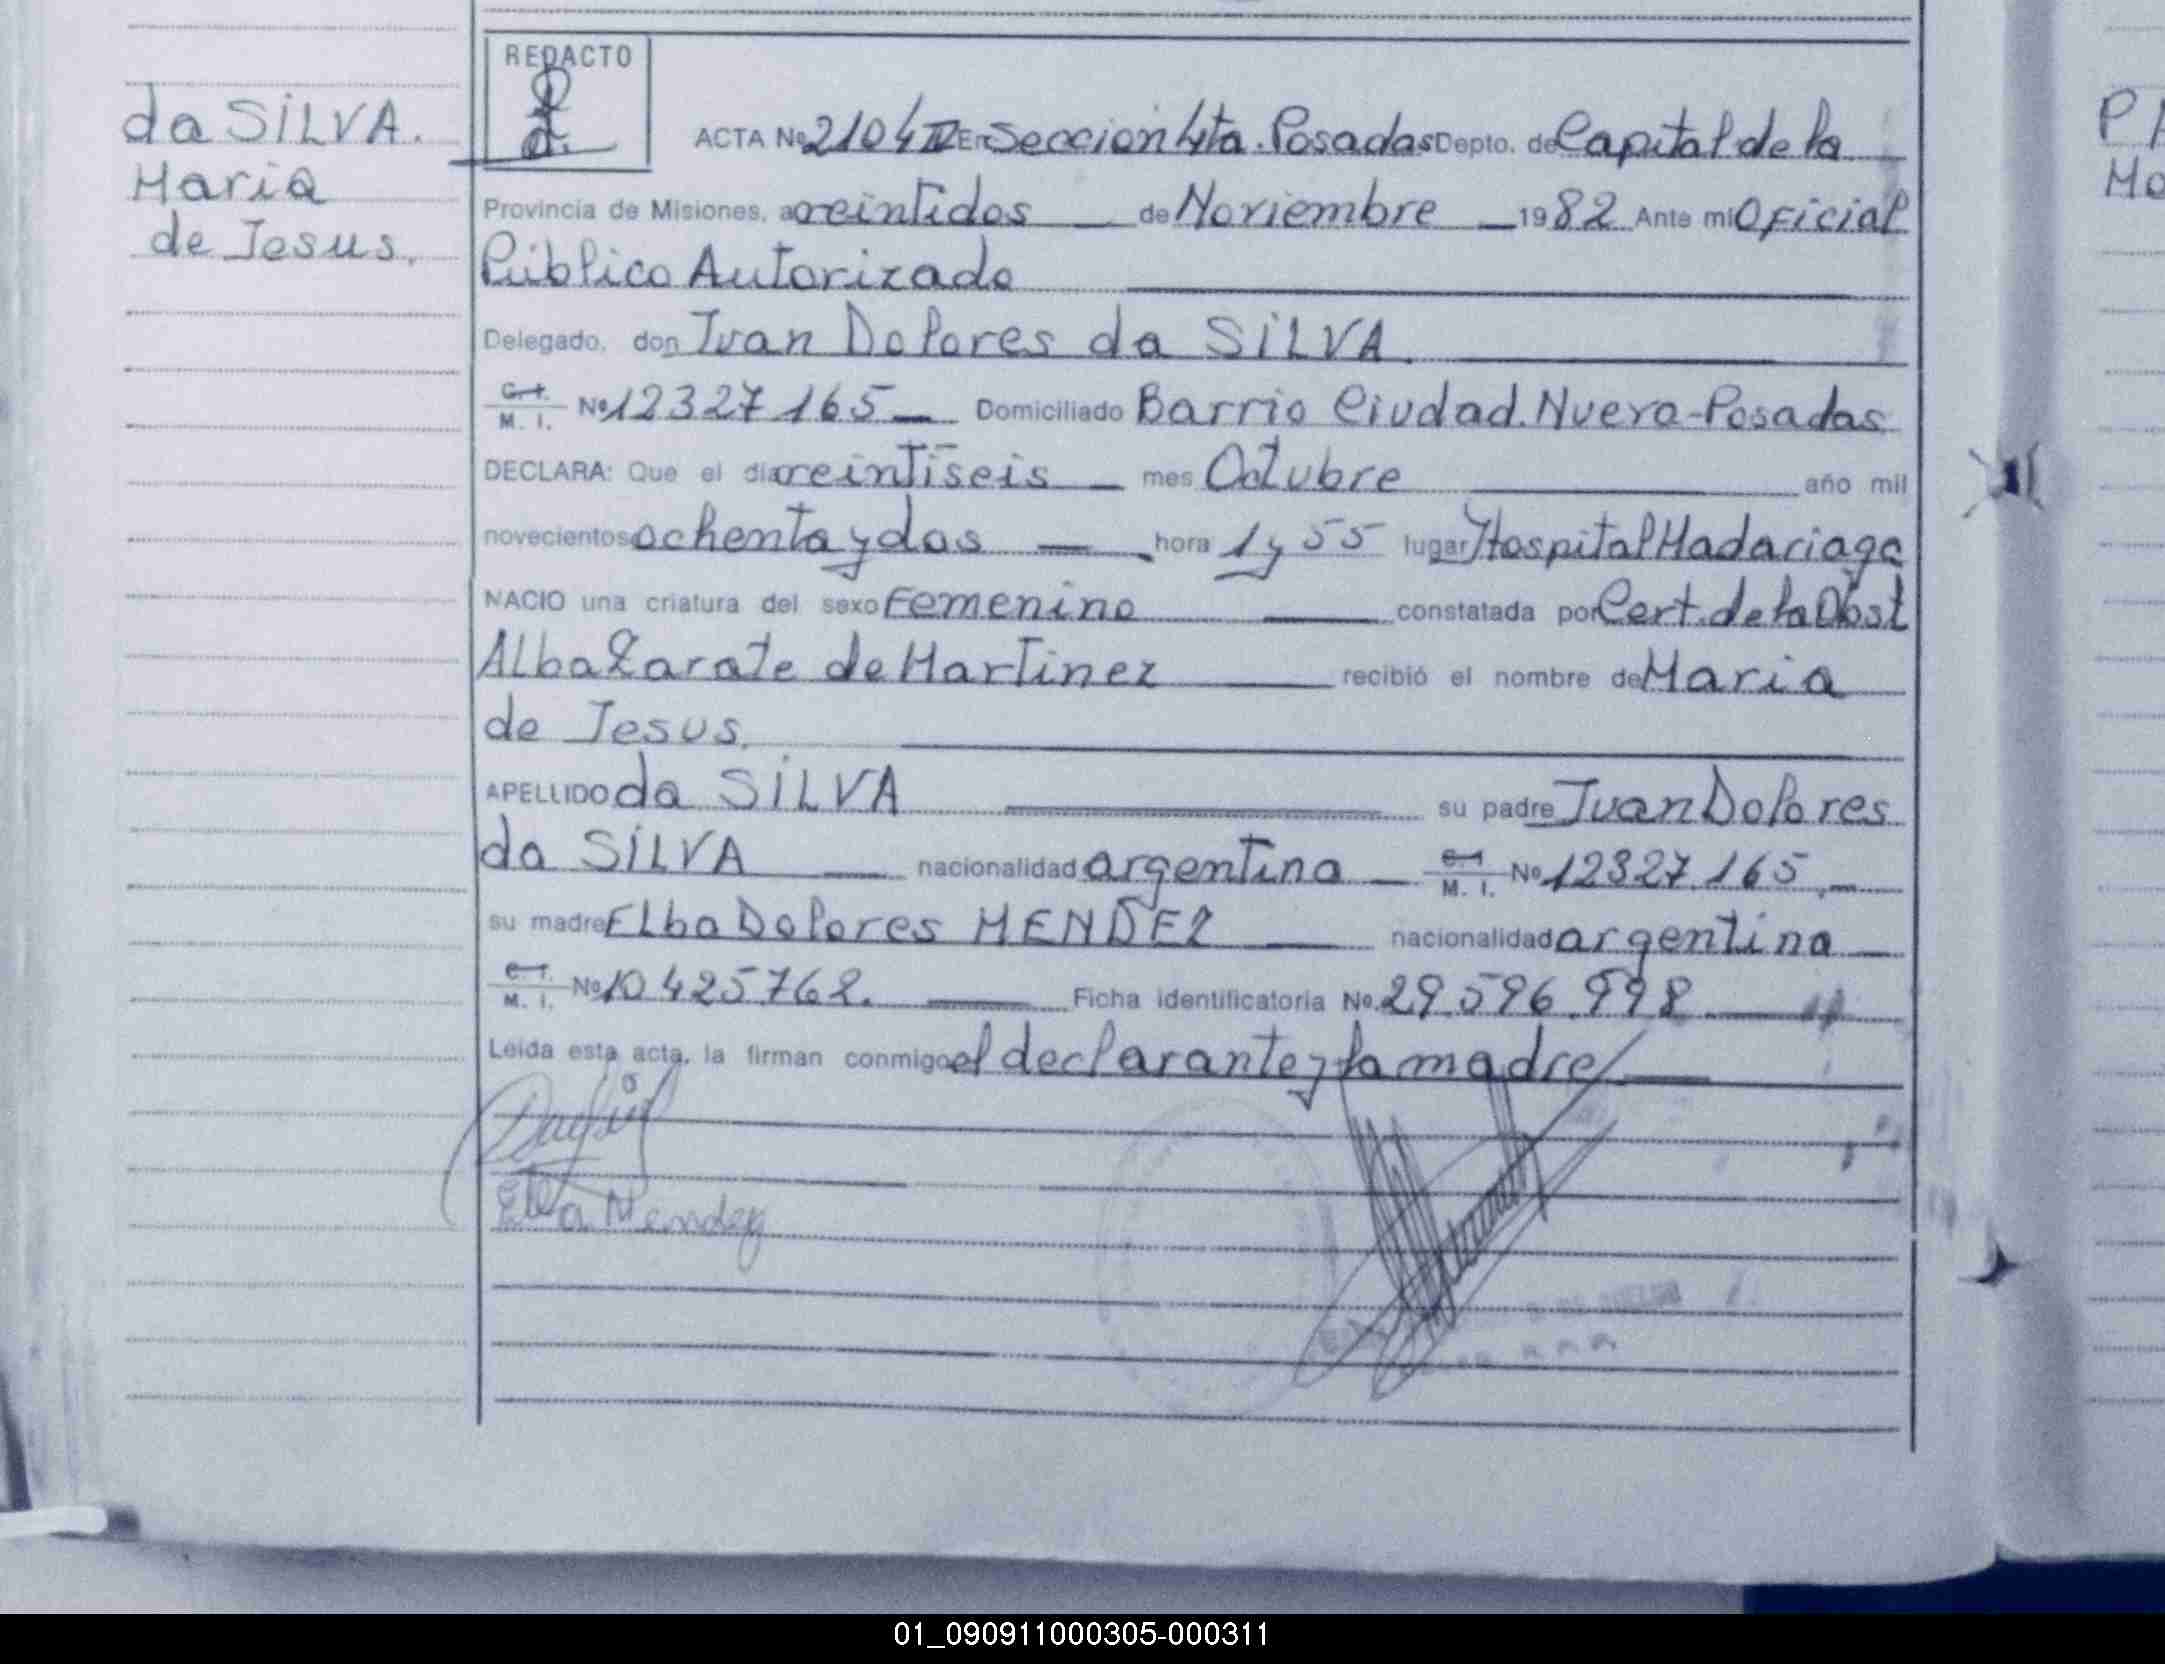 da SILVA.
Maria
de Jesus.
REDACTO
ACTA Nº 2104 IV En Seccion 4ta. Posadas Depto. de Capital de la
Provincia de Misiones, a veintidos de Noviembre 1982 Ante mi Oficial
Público Autorizado
Delegado, don Juan Dolores da SILVA.
C. I.
M. I. Nº 12327165 Domiciliado Barrio Ciudad. Nueva-Posadas
DECLARA: Que el dia veintiseis mes Octubre año mil
novecientos ochenta y dos hora 1 y 55 lugar Hospital Madariaga
NACIO una criatura del sexo Femenino constatada por Cert. de la Obst
Alba Zarate de Martinez recibió el nombre de Maria
de Jesus.
APELLIDO da SILVA su padre Juan Dolores
da SILVA nacionalidad argentina C. I. M. I. Nº 12327165.
su madre Elba Dolores MENDEZ nacionalidad argentina
C. I.
M. I. Nº 10425762. Ficha identificatoria No. 29.596.998
Leida esta acta, la firman conmigo el declarante y la madre
Elba Mendez
PA
Ma
01_090911000305-000311